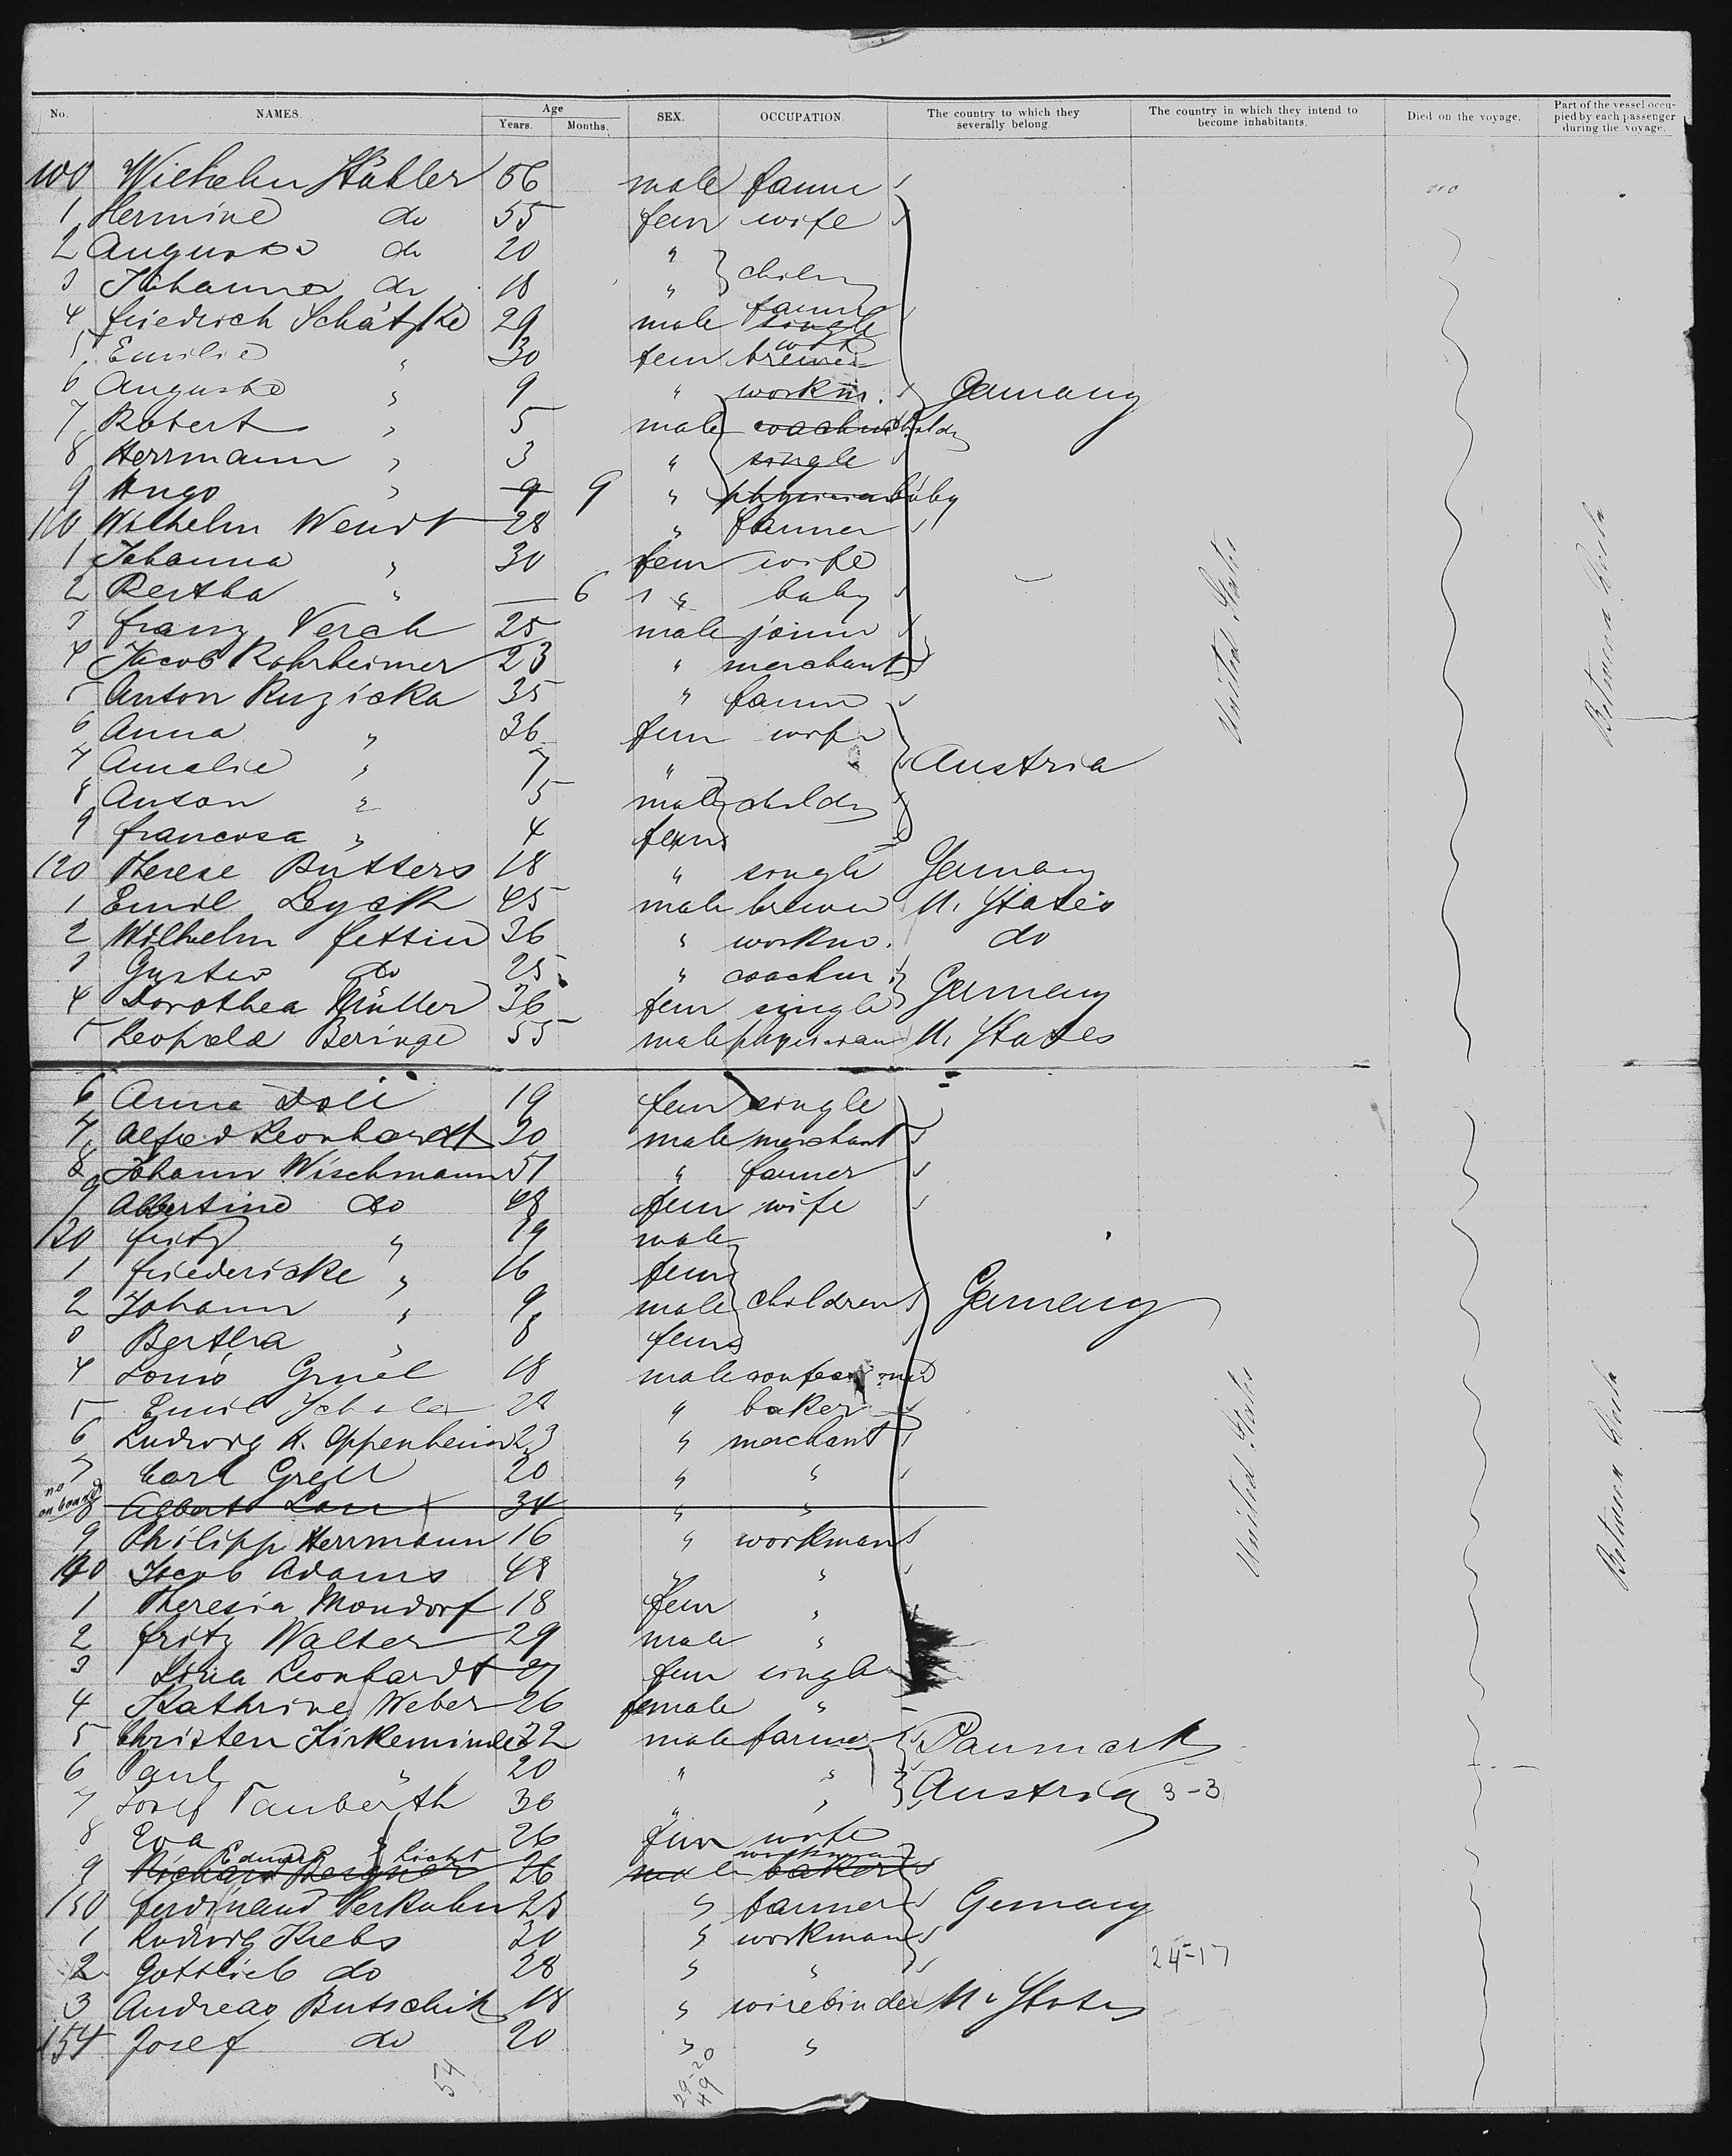 No. NAMES. Age Years. Months. SEX. OCCUPATION. The country to which they severally belong. The country in which they intend to become inhabitants. Died on the voyage. Part of the vessel occupied by each passenger during the voyage.
100 Wilhelm Stähler 56 male farmer
1 Hermine do 55 fem wife
2 Auguste do 20 "
3 Johanna do 18 " childr
4 Friedrich Schätzke 29 male farmer single
5 Emilie " 30 fem wife brewer
6 Auguste " 9 " workm.
7 Robert " 5 male coachm childr Germany
8 Herrmann " 3 " single
9 Hugo " 9 9 " physician baby
110 Wilhelm Wendt 28 " farmer
1 Johanna " 30 fem wife
2 Bertha " — 6 " baby
3 Franz Verch 25 male joiner
4 Jacob Rohrheimer 23 " merchant
5 Anton Ruzicka 35 " farmer
6 Anna " 36 fem wife
7 Amalie " 7 " Austria
8 Anton " 5 male childr
9 Francosa " 4 fem
120 Therese Butters 18 " single Germany
1 Emil Leyck 45 male brewer U. States
2 Wilhelm Fettin 36 " workm. do
3 Gustav do 25 " coachm
4 Dorothea Müller 36 fem single Germany
5 Leopold Beringe 55 male physician U. States
United States
Between Deck
6 Anna Doll 19 fem single
7 Alfred Leonhardt 20 male merchant
8 Johann Wischmann 51 " farmer
9 Albertine do 48 fem wife
130 Fritz " 19 male
1 Friedericke " 16 fem
2 Johann " 9 male children Germany
3 Bertha " 8 fem
4 Louis Gruel 18 male
5 Emil 28 " baker
6 Ludwig H. Oppenheim 23 " merchant
7 Carl 20 " "
no on board 8 Albert 34 " "
9 Philipp Herrmann 16 " workman
140 Jacob Adams 48 " "
1 Theresia Mondorf 18 fem "
2 Fritz Walter 29 male "
3 Lina Leonhardt 27 fem single
4 Kathrine Weber 26 female "
5 Christen Kirkeminde 22 male farmer Danmark
6 Paul " 20 " "
7 Josef Tauberth 36 " " Austria 3-3
8 Eva " 26 fem wife
Eduard Licht workman
9 Richard 26 male baker
150 Ferdinand Verkuhn 25 " farmer Germany
1 Ludwig Krebs 30 " workman
2 Gottlieb do 28 " " 24-17
3 Andreas Butschik 18 " wirebinder U. States
154 Josef do 20 " "
United States
Between Deck
54
29-20
49